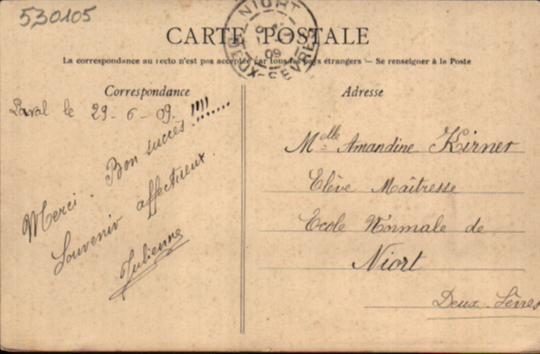 530105
NIORT
09
DEUX-SEVRES
CARTE POSTALE
La correspondance au recto n'est pas acceptée par tous les pays étrangers — Se renseigner à la Poste
Correspondance
Laval le 29-6-09.
Merci. Bon succès!!!!.......
Souvenir affectueux.
Julienne
Adresse
Mlle Amandine Kirner
Elève Maîtresse
Ecole Normale de
Niort
Deux-Sèvres